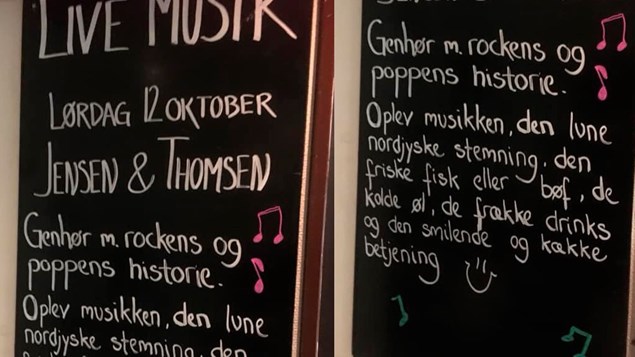 LIVE MUSIK
LØRDAG 12 OKTOBER
JENSEN & THOMSEN
Genhør m. rockens og
poppens historie.
Oplev musikken, den lune
nordjyske stemning, den
Genhør m. rockens og
poppens historie.
Oplev musikken, den lune
nordjyske stemning, den
friske fisk eller bøf, de
kolde øl, de frække drinks
og den smilende og kække
betjening